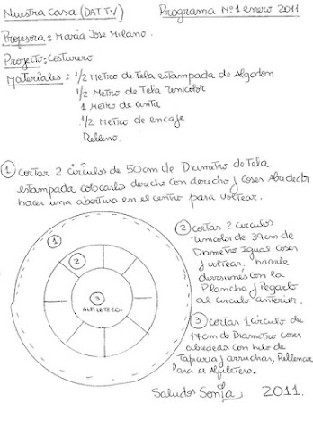 Nuestra Casa (DAT TV) Programa Nº1 enero 2011
Profesora: Maria Jose Milano.
Proyecto: Costurero
Materiales: 1/2 Metro de Tela estampada de Algodon
1/2 Metro de Tela Unicolor
1 Metro de cinta
1/2 Metro de encaje
Relleno.
① cortar 2 circulos de 50cm de Diametro de Tela
estampada colocarlos derecho con derecho y coser alrededor
hacer una abertura en el centro para voltear.
② cortar 2 circulos
unicolor de cm de
Diametro Igual coser
y voltear. hacerle
divisiones con la
Plancha y Pegarlo
al circulo anterior.
1
2
3
ALFILETERO
③ cortar 1 circulo de
14cm de Diametro coser
alrededor con hilo de
Tapiceria y arruchar, Rellenar
Para el alfiletero.
Saludos Sonia, 2011.